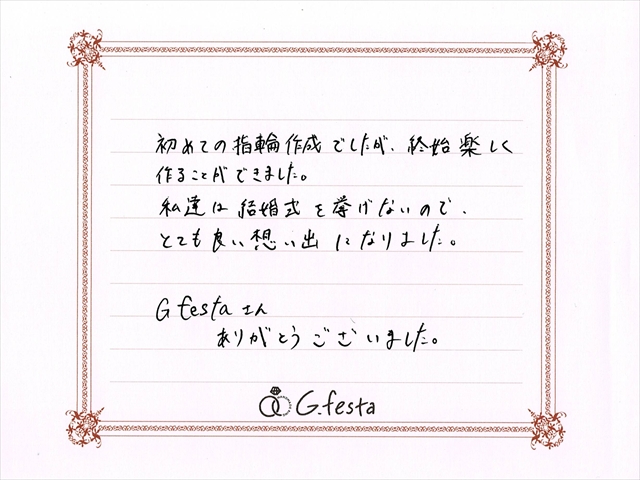 初めての指輪作成でしたが、終始楽しく
作ることができました。
私達は結婚式を挙げないので、
とても良い想い出になりました。
G festaさん
ありがとうございました。
G.festa